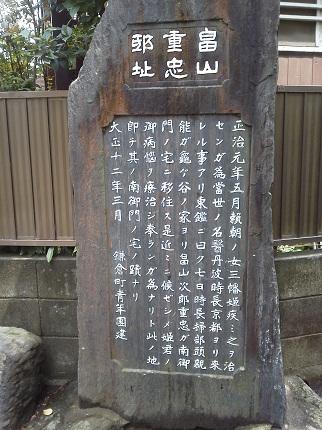 畠山
重忠
邸址
正治元年五月頼朝ノ女三幡姫疾ミ之ヲ治
センガ為當世ノ名醫丹波時長京都ヨリ來
レル事アリ東鑑ニ曰ク七日時長掃部頭親
能ガ龜ガ谷ノ家ヨリ畠山次郎重忠ガ南御
門ノ宅ニ移住ス是近々ニ候ゼシメ姫君ノ
御病惱ヲ療治シ奉ランガ為ナリト此ノ地
即チ其ノ南御門ノ宅ノ蹟ナリ
大正十二年三月 鎌倉町青年團建